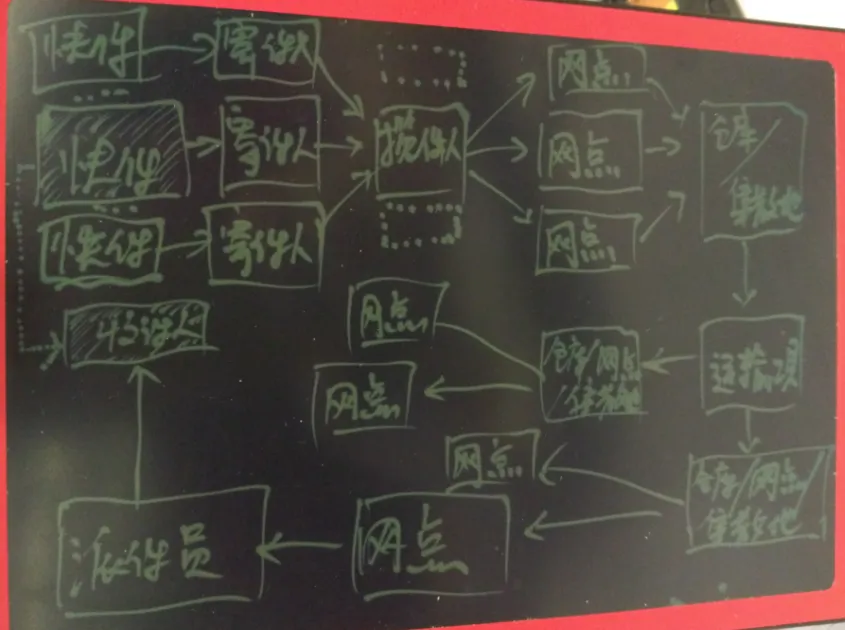 快件
寄件人
网点
快件
寄件人
揽件人
网点
仓库/
集散地
快件
寄件人
网点
收件人
网点
仓库/网点
/集散地
运输项
网点
网点
仓库/网点/
集散地
派件员
网点